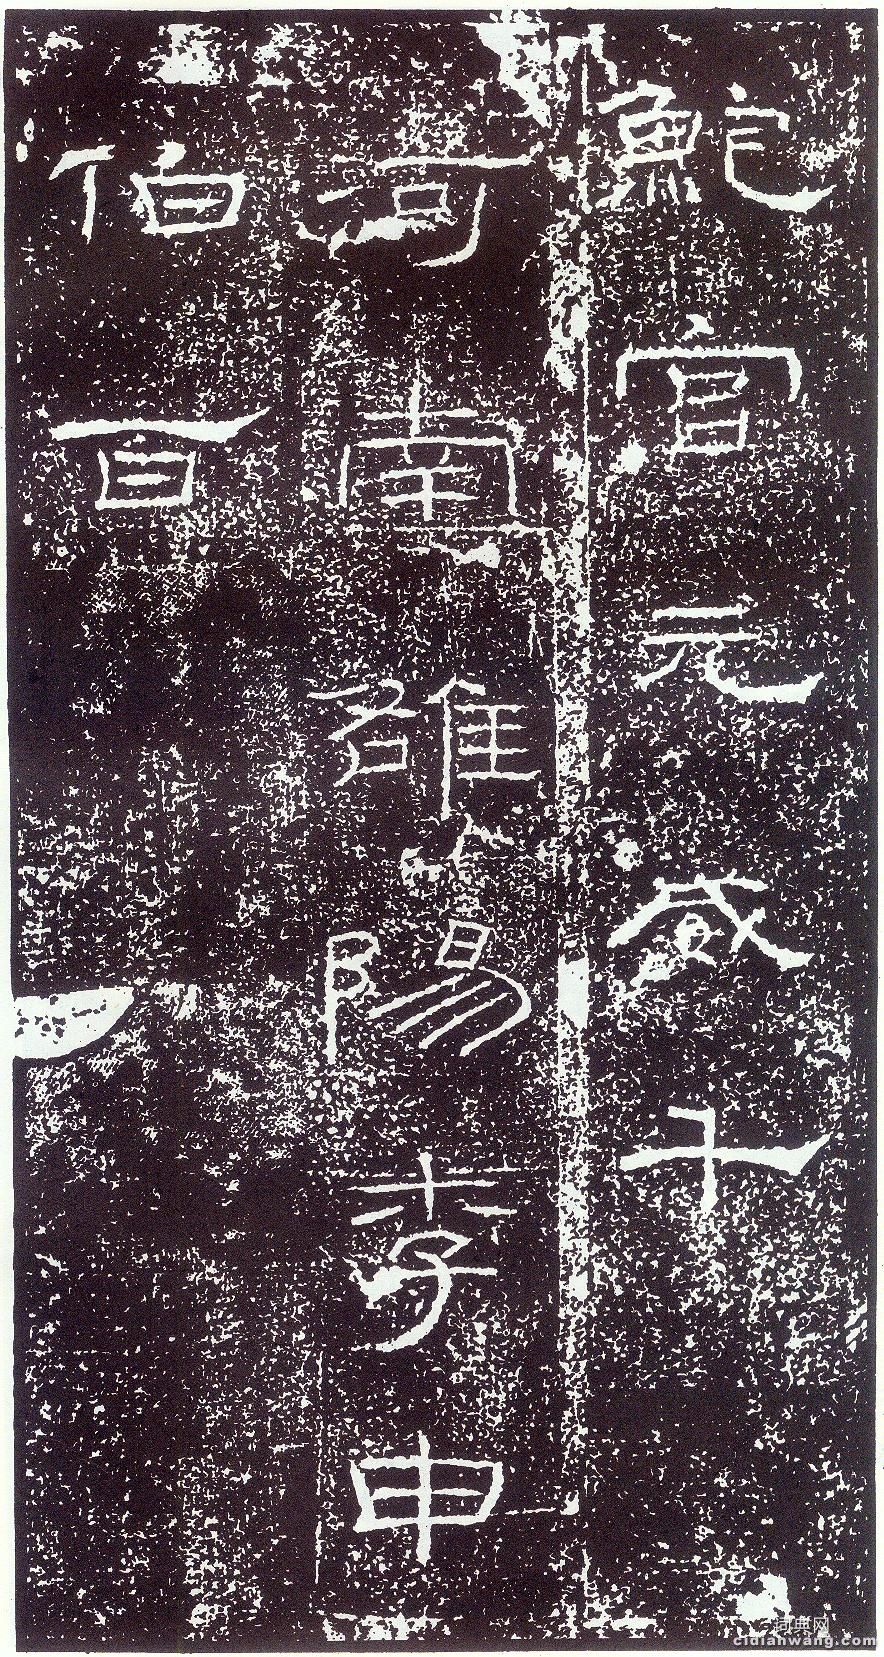 鮑宮元威千
河南雒陽李申
伯百
词典网
cidianwang.com